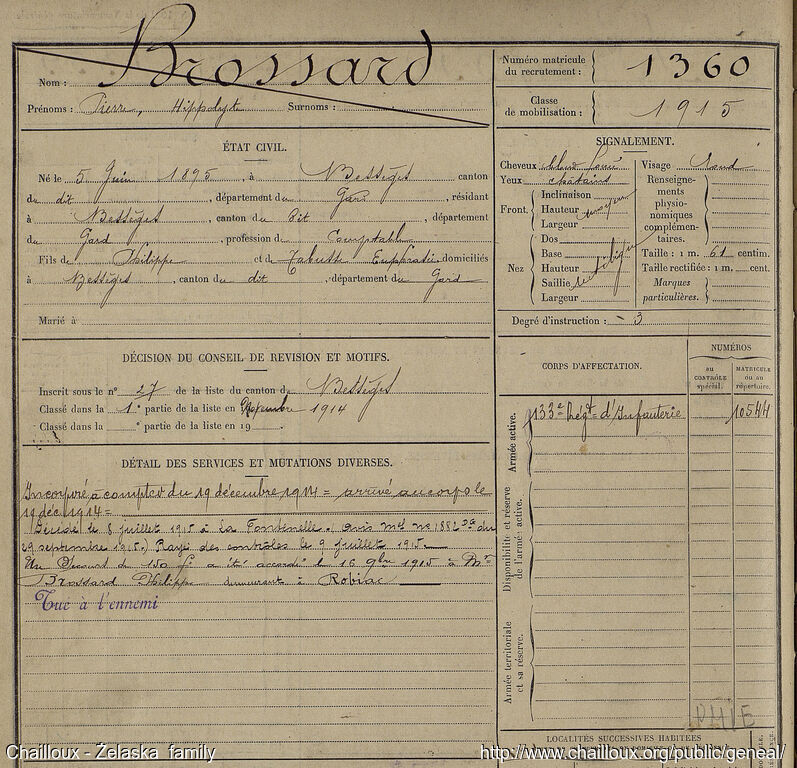 Brossard
Nom :
Prénoms : Pierre, Hippolyte Surnoms :
Numéro matricule
du recrutement : 1360
Classe
de mobilisation : 1915
ÉTAT CIVIL.
Né le 5 Juin 1895, à Bessèges canton
du dit, département du Gard, résidant
à Bessèges, canton du dit, département
du Gard, profession de Comptable
Fils de Philippe et de Euphrasie domiciliés
à Bessèges, canton du dit, département du Gard
Marié à
SIGNALEMENT.
Cheveux Visage rond
Yeux
Front. Inclinaison
Hauteur moyen
Largeur
Nez Dos
Base
Hauteur
Saillie
Largeur
Renseigne-
ments
physio-
nomiques
complémen-
taires.
Taille : 1 m. 61 centim.
Taille rectifiée : 1 m. cent.
Marques
particulières.
Degré d'instruction : 3
DÉCISION DU CONSEIL DE REVISION ET MOTIFS.
Inscrit sous le n° 27 de la liste du canton de Bessèges
Classé dans la 1e partie de la liste en 1914
Classé dans la ° partie de la liste en 19
CORPS D'AFFECTATION.
NUMÉROS
au
CONTRÔLE
spécial.
MATRICULE
ou au
répertoire.
Armée active.
133e Régt d'Infanterie 10544
Disponibilité et réserve
de l'armée active.
Armée territoriale
et sa réserve.
DÉTAIL DES SERVICES ET MUTATIONS DIVERSES.
Incorporé à compter du 19 décembre 1914 = arrivé au corps le
19 déc. 1914 =
Décédé le 8 juillet 1915 à La Fontenelle. avis du
29 septembre 1915.) Rayé des contrôles le 9 juillet 1915.
Un secours de 150 f. a été accordé le 16 9bre 1915 à Mr
Brossard Philippe demeurant à Robiac
Tué à l'ennemi
LOCALITÉS SUCCESSIVES HABITÉES
Chailloux - Żelaska family
http://www.chailloux.org/public/geneal/